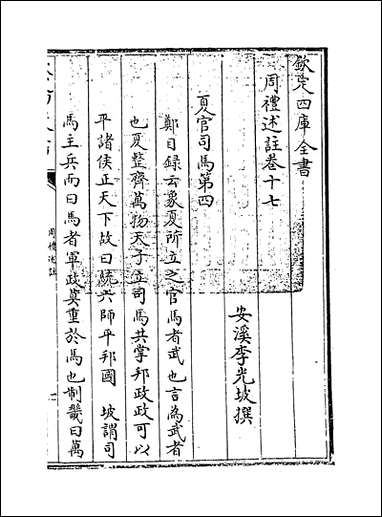 欽定四庫全書
周禮述註卷十七
安溪李光坡撰
夏官司馬第四
鄭目録云象夏所立之官馬者武也言為武者
也夏整齊萬物天子立司馬共掌邦政政可以
平諸侯正天下故曰統六師平邦國 坡謂司
馬主兵而曰馬者軍政莫重於馬也制畿曰萬
周禮述註